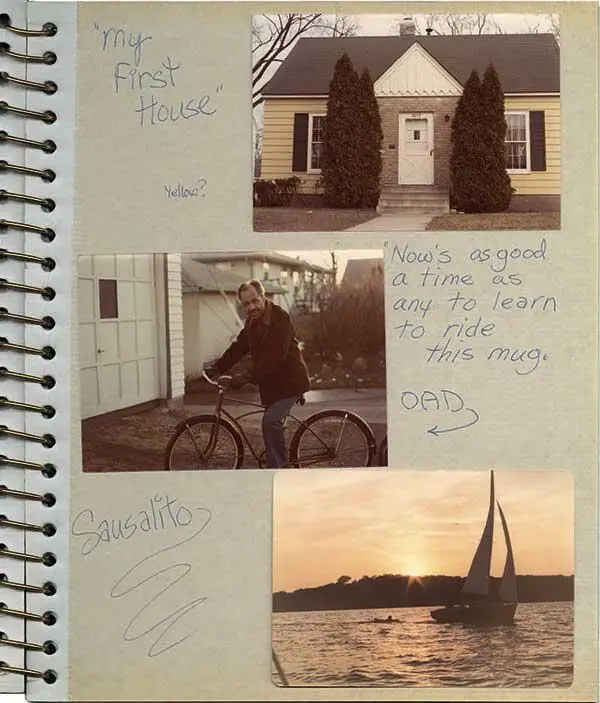 "My
First
House"
Yellow?
"Now's as good
a time as
any to learn
to ride
this mug.
DAD
Sausalito